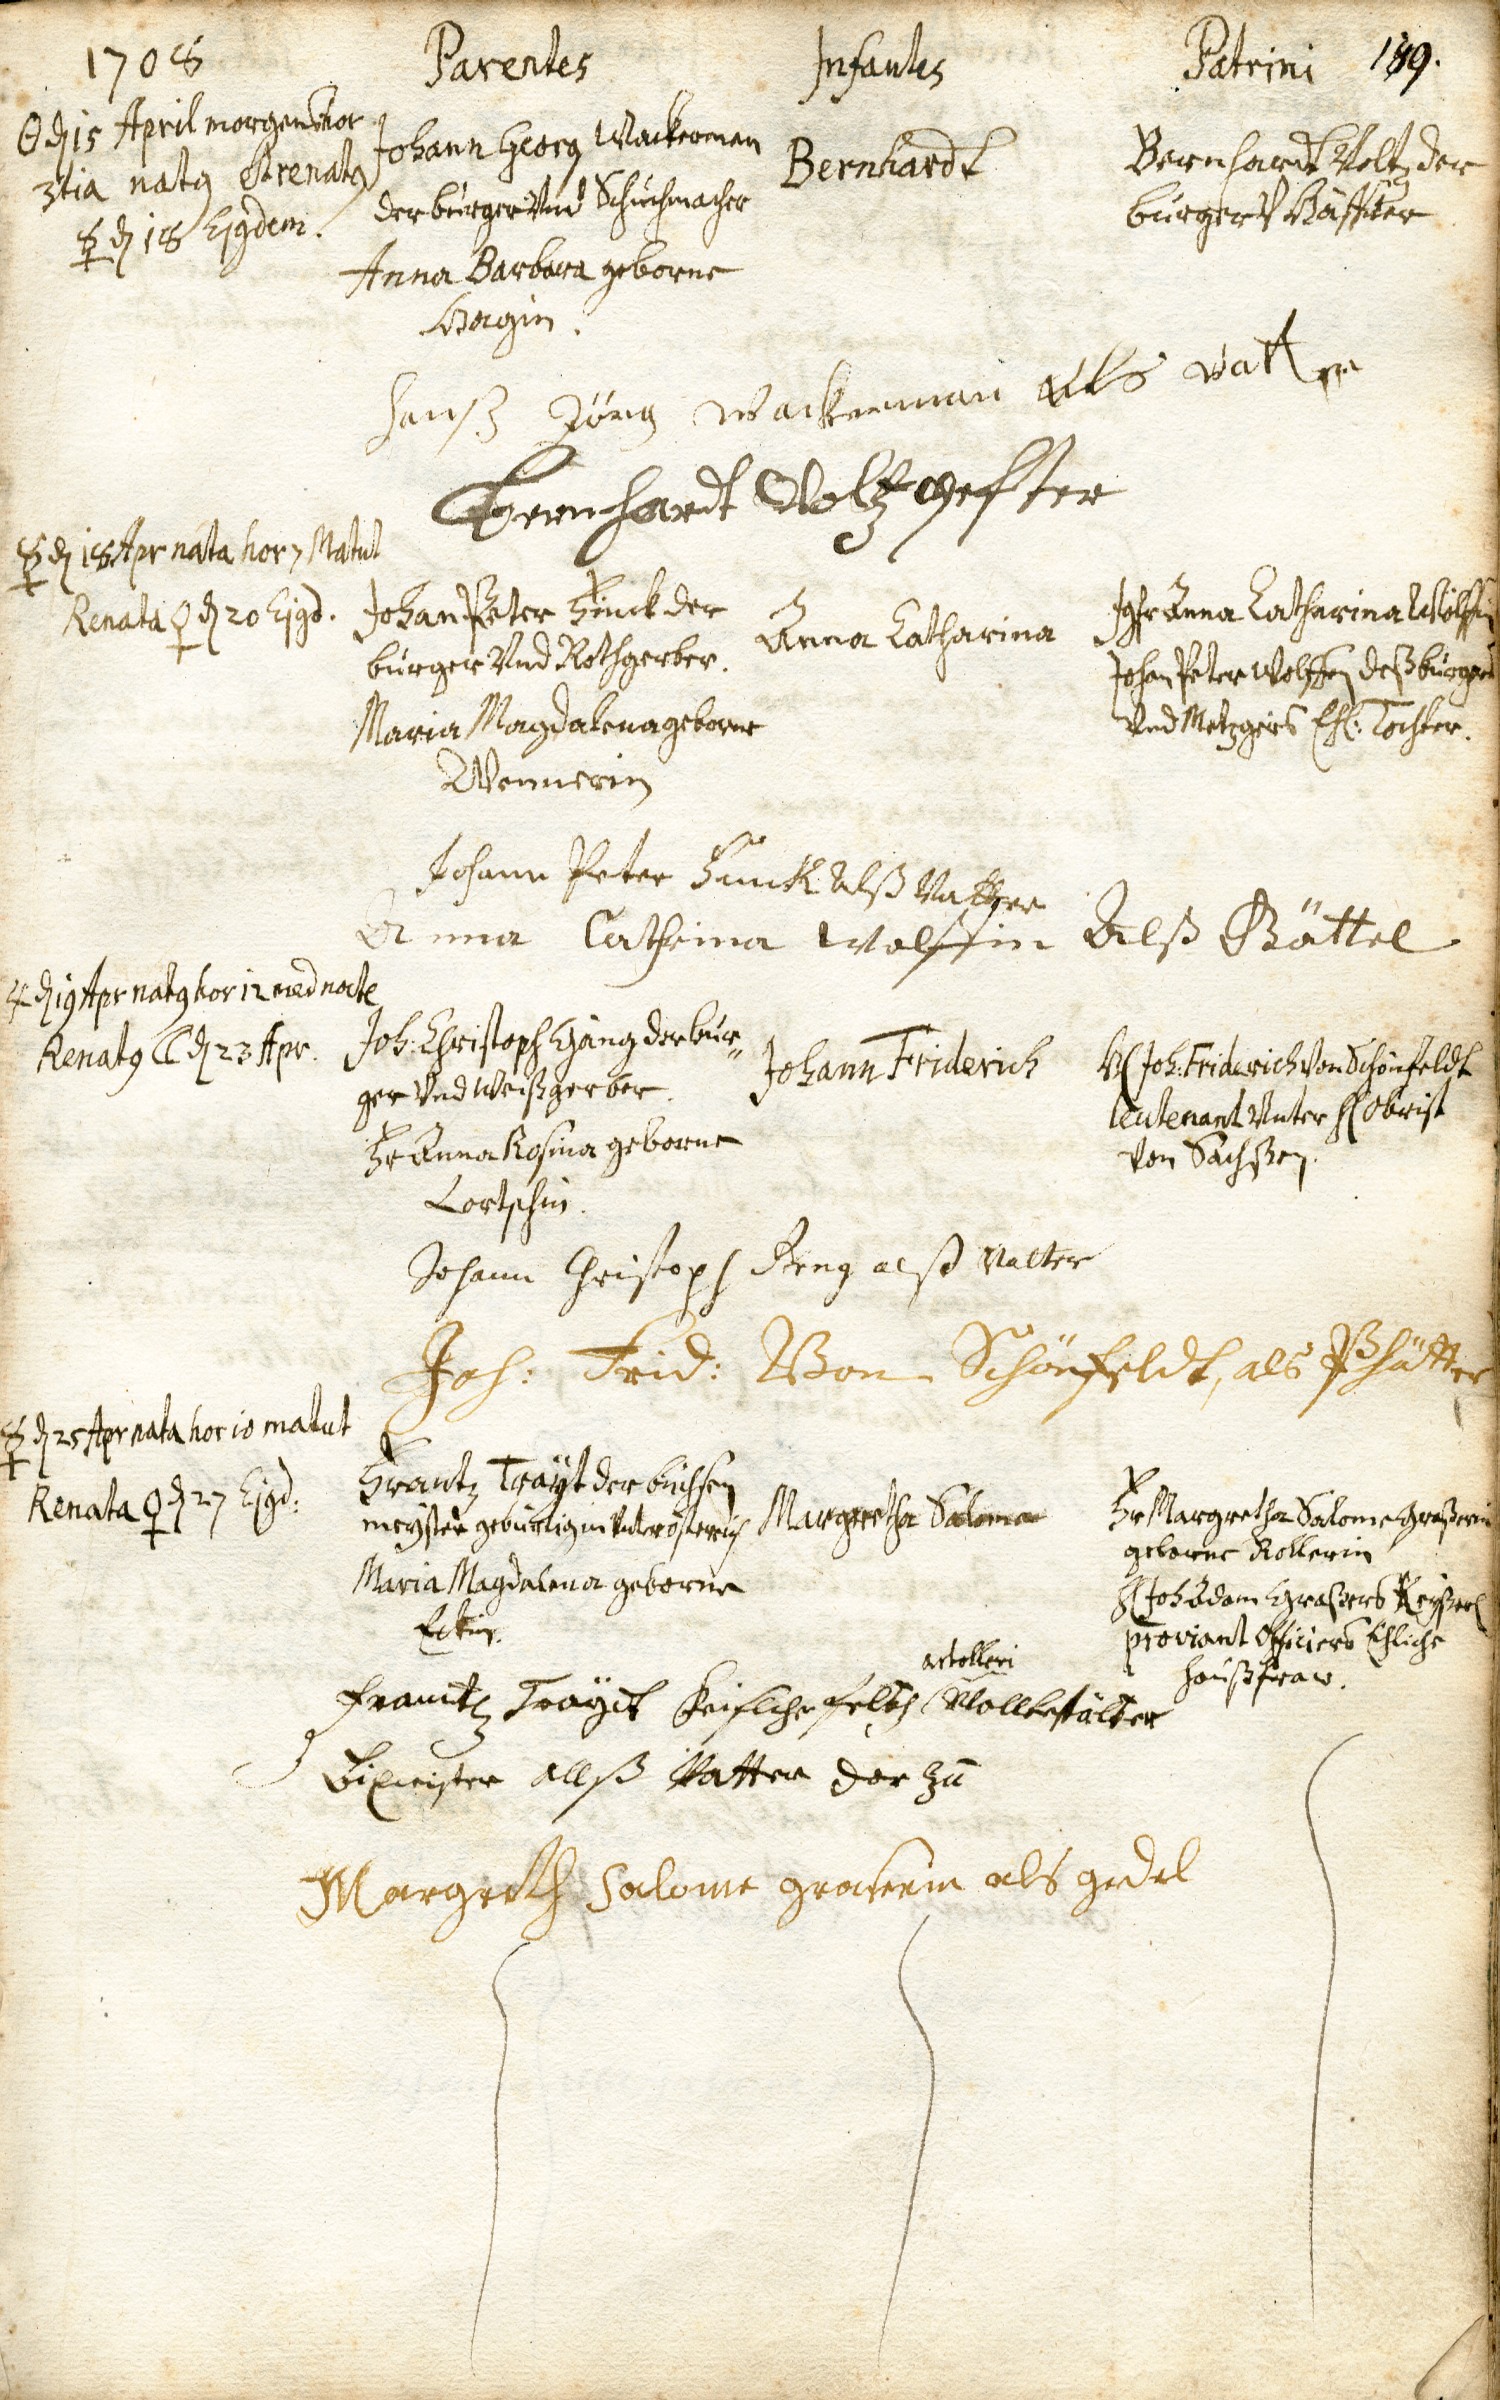 1708 Parentes Infantes Patrini 189.
☉ d 15 April morgens hor
3tia natg & renatg
☿ d 18 Ejgdem.
Johann Georg Wackerman
der burger Vnd Schuchmacher
Anna Barbara geborne
Hagin.
Bernhardt
Bernhardt Voltz der
burger V Häffner
Hanß Jörg Wackerman als vatter
Bernhardt Voltz Hefter
☿ d 18 Apr nata hor 7 Matut
Renata ♀ d 20 Ejgd.
Johan Peter Finck der
burger Vnd Rothgerber.
Maria Magdalena geborne
Wennerin
Anna Catharina
Jgfr Anna Catharina Wölffin
Johan Peter Wolffen deß burgers
Vnd Metzgers Ehl: Tochter.
Johann Peter Finck alß Vatter
Anna Catheina Wolffin Alß Göttel
♃ d 19 Apr natg hor 12 med nocte
Renatg ☾ d 23 Apr.
Joh: Christoph Häng der bur„
ger Vnd Weißgerber.
Fr Anna Rosina geborne
Lortschin.
Johann Friderich
H Joh: Friderich Von Schönfeldt
leutenant Vnter H Obrist
Von Sachßen.
Johann Christoph Heng alß Vatter
Joh: Frid: Von Schönfeldt, als Pfätter
☿ d 25 Apr nata hor 10 matut
Renata ♀ d 27 Ejgd:
Frantz Trayt der büchsen
meyster gebürtig in Vnterösterreich
Maria Magdalena geborne
Eckin.
Margretha Salome
Fr Margretha Salome Graßerin
geborne Rollerin
H Joh Adam Graßers Keyßerl
proviant Officiers Ehliche
haußfraw.
artolleri
Frantz Trayct Keislicher feldt Vollbestälter
Bixmeister allß Vatter dar zu
Margreth Salome graserin als gedel